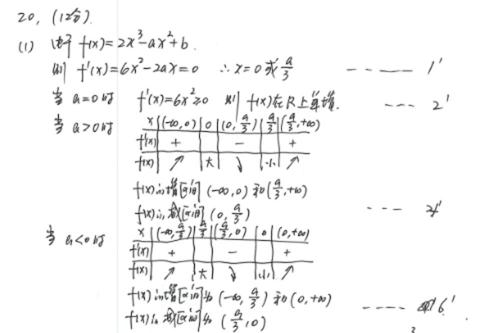 20. (12分)
(1) 由于 f(x)=2x³-ax²+b.
则 f'(x)=6x²-2ax=0 ∴x=0或a/3 ---- 1'
当 a=0时 f'(x)=6x²≥0 则 f(x)在R上单增. --- 2'
当 a>0时 x (-∞,0) 0 (0,a/3) a/3 (a/3,+∞)
f'(x) + - +
f(x) ↗ 大 ↘ 小 ↗
f(x)的增区间 (-∞,0) 和 (a/3,+∞)
f(x)的减区间 (0,a/3) --- 4'
当 a<0时 x (-∞,a/3) a/3 (a/3,0) 0 (0,+∞)
f'(x) + - +
f(x) ↗ 大 ↘ 小 ↗
f(x)的增区间为 (-∞,a/3) 和 (0,+∞) ---- 6'
f(x)的减区间为 (a/3,0)